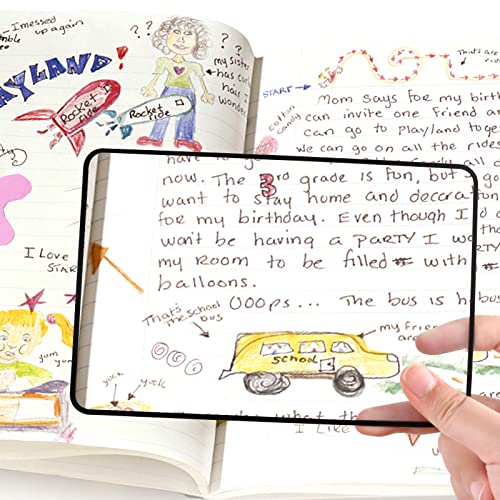 I messed
up again
??
??
my sister
has curl
hair I
wonder
AYLAND!
Rocket I
Ride
Rocket
Ride
I Love
STAR
yum
yum
START
That's are
cotton
candy
Mom says for my birth
can invite one friend a
can go to play/land togeth
we can go on all the rides
candy all d
have to go
now. The 3rd grade is fun, but
want to stay home and decorat
for my birthday. Even though I
won't be having a PARTY I wo
my room to be filled with
balloons.
OOOps... The bus is h
That's
the school
bus
my frie
are
School
yuck
yuck
what th
I Like